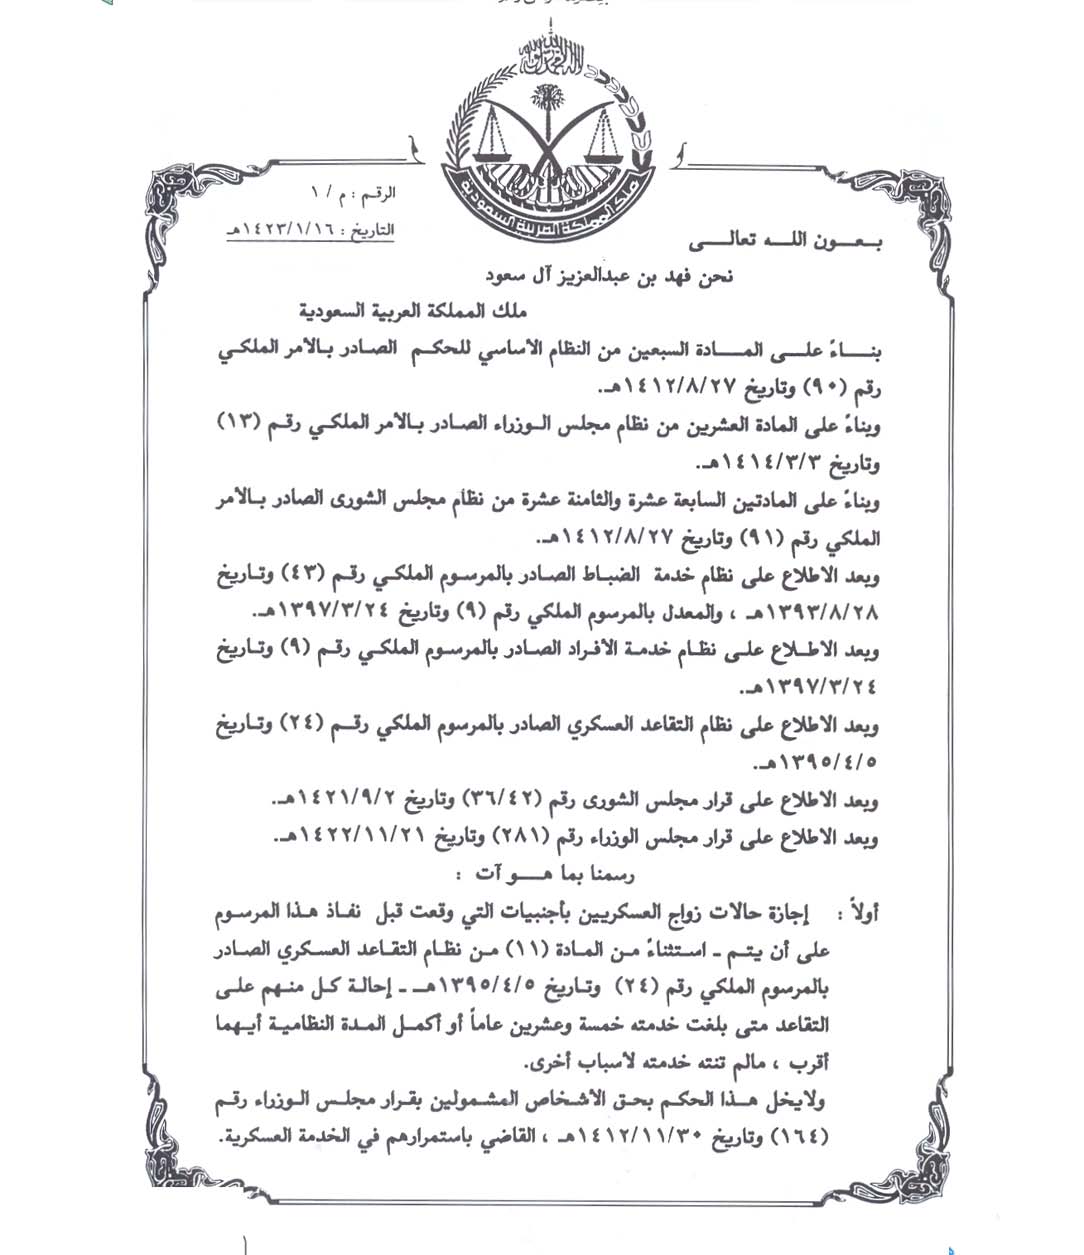 لا إله إلا الله محمد رسول الله
المملكة العربية السعودية
الرقم : م / ١
التاريخ : ١٤٢٣/١/١٦هـ
بـعـــون اللـــه تعالـــى
نحن فهد بن عبدالعزيز آل سعود
ملك المملكة العربية السعودية
بنـــاءً علـــى المـــادة السبعين من النظام الأساسي للحكم الصادر بـالأمر الملكي
رقم (٩٠) وتاريخ ١٤١٢/٨/٢٧هـ.
وبناءً على المادة العشرين من نظام مجلس الـوزراء الصادر بـالأمر الملكـي رقـم (١٣)
وتاريخ ١٤١٤/٣/٣هـ.
وبناءً على المادتين السابعة عشرة والثامنة عشرة من نظام مجلس الشورى الصادر بـالأمر
الملكي رقم (٩١) وتاريخ ١٤١٢/٨/٢٧هـ.
وبعد الاطلاع على نظام خدمة الضباط الصادر بالمرسوم الملكـي رقـم (٤٣) وتـاريخ
١٣٩٣/٨/٢٨هـ ، والمعدل بالمرسوم الملكي رقم (٩) وتاريخ ١٣٩٧/٣/٢٤هـ.
وبعد الاطـلاع علـى نظـام خدمـة الأفراد الصادر بالمرسوم الملكـي رقـم (٩) وتـاريخ
١٣٩٧/٣/٢٤هـ.
وبعد الاطلاع على نظام التقاعد العسكري الصادر بالمرسوم الملكي رقـم (٢٤) وتـاريخ
١٣٩٥/٤/٥هـ.
وبعد الاطلاع على قرار مجلس الشورى رقم (٣٦/٤٢) وتاريخ ١٤٢١/٩/٢هـ.
وبعد الاطلاع على قرار مجلس الوزراء رقم (٢٨١) وتاريخ ١٤٢٢/١١/٢١هـ.
رسمنا بما هـــو آت :
أولاً : إجازة حالات زواج العسكريين بأجنبيات التي وقعت قبل نفـاذ هـذا المرسوم
على أن يتـم ـ استثناءً مـن المـادة (١١) مـن نظـام التقاعد العسكري الصادر
بالمرسوم الملكي رقم (٢٤) وتاريخ ١٣٩٥/٤/٥هـ ـ إحالة كـل منـهم علـى
التقاعد متى بلغت خدمته خمسة وعشرين عاماً أو أكمـل المدة النظاميـة أيـهما
أقرب ، مالم تنته خدمته لأسباب أخرى.
ولايخل هـذا الحكم بحق الأشخاص المشمولين بقـرار مجلـس الـوزراء رقـم
(١٦٤) وتاريخ ١٤١٢/١١/٣٠هـ ، القاضي باستمرارهم في الخدمة العسكرية.